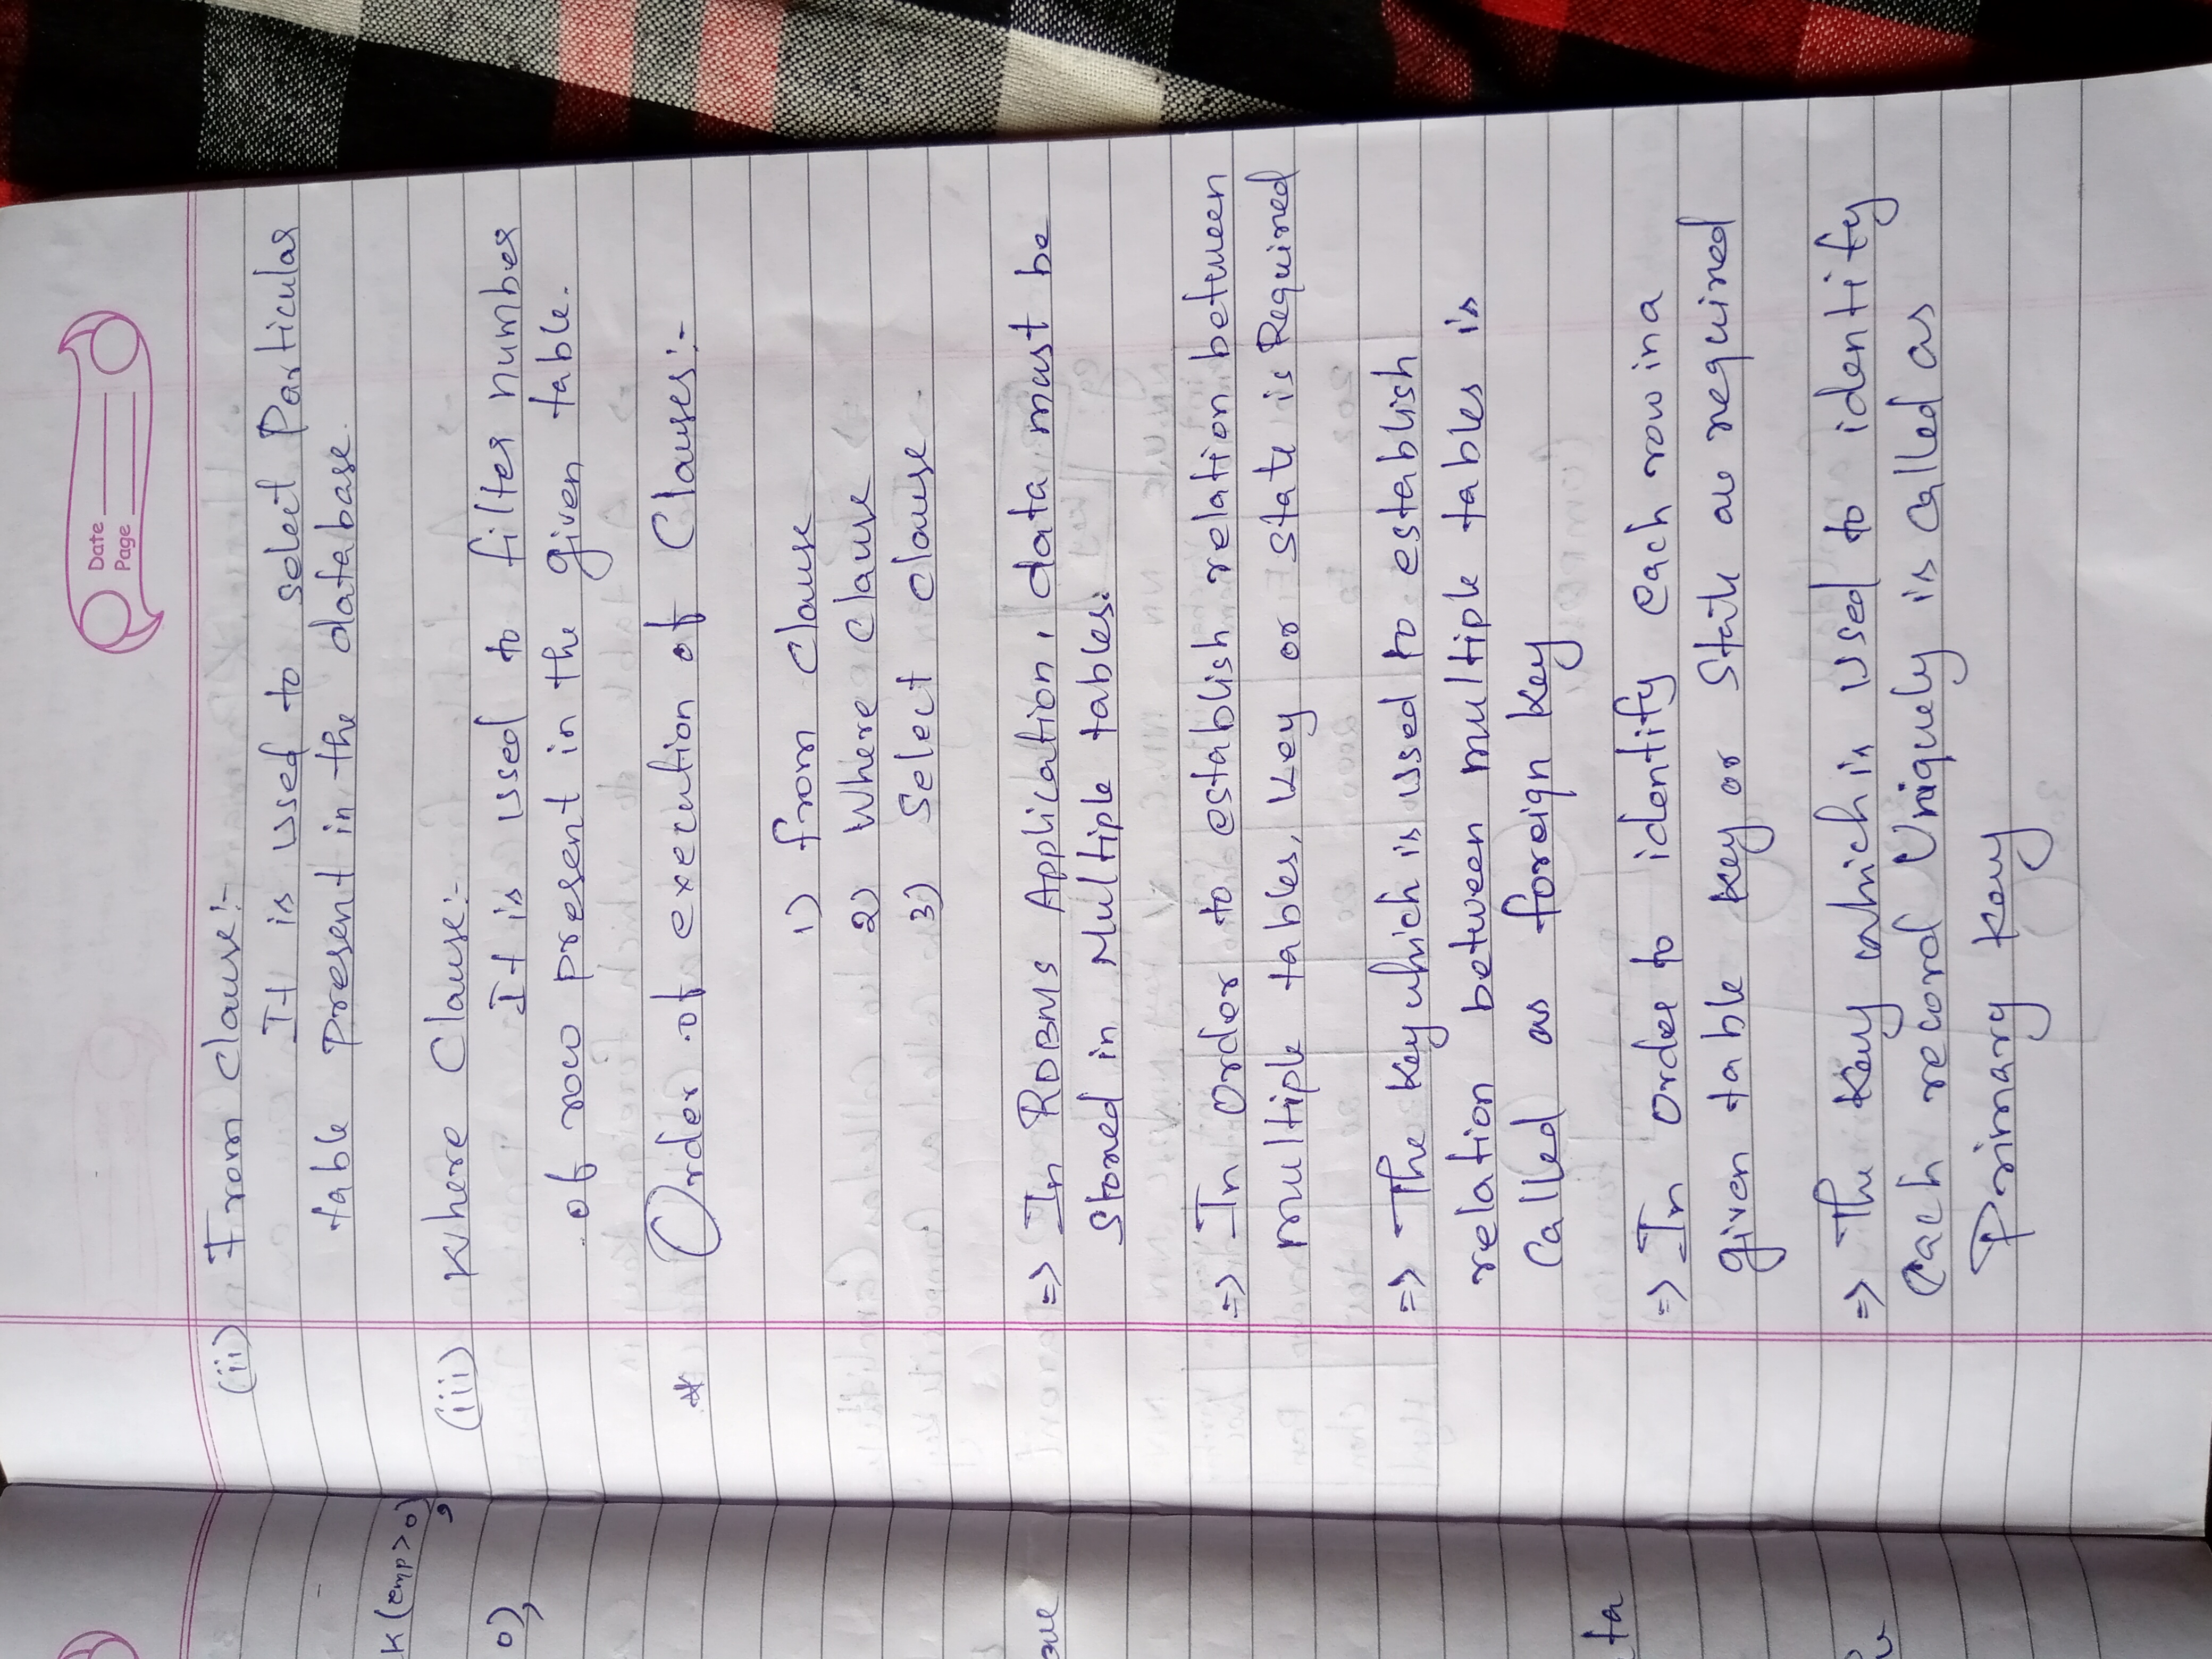 Date
Page
(ii) From clause:-
It is used to select Particular
table present in the database.
K (emp>0)
,
(iii) Where Clause:-
0),
It is used to filter number
of row present in the given table.
* Order of execution of Clauses:-
1) from clause
2) Where clause
3) Select clause
=> In RDBMS Application, data must be
Stored in Multiple tables.
=> In order to establish relation between
multiple tables, Key or state is Required
=> The Key which is used to establish
relation between multiple tables is
Called as foreign Key
ta
=> In order to identify each row in a
given table Key or State are required
=> The Key which is Used to identify
Each record Uniquely is Called as
Primary Key